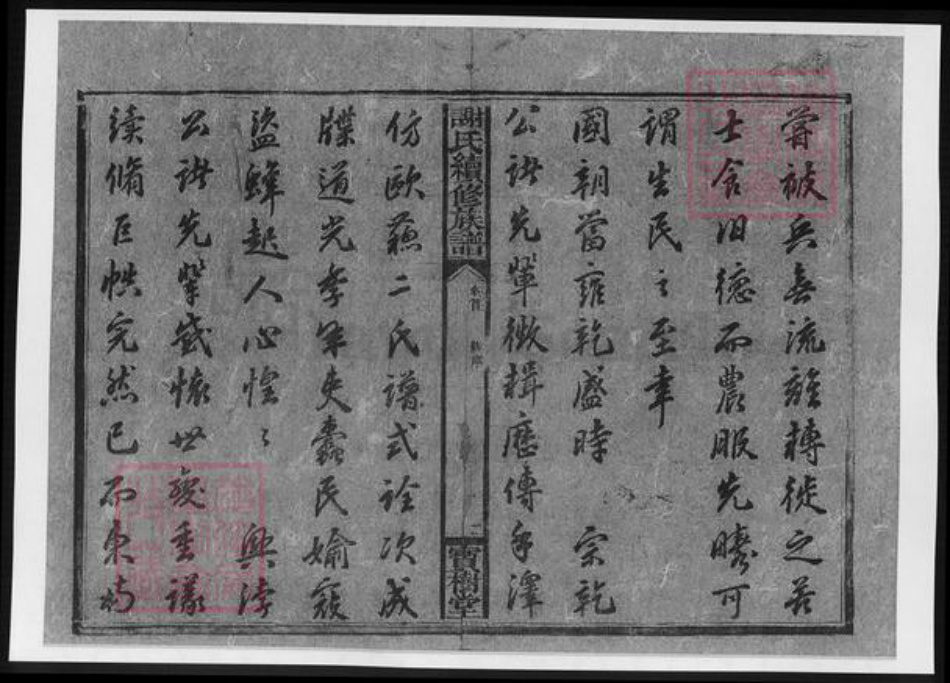 嘗被兵喜流離轉徙之苦
士食旧德而農服先疇可
謂生民之至幸
國朝當雍乾盛時 宗乾
公諸先輩徵輯歷傳手澤
謝氏續修族譜
卷首
二
寶樹堂
仿歐蘇二氏譜式詮次成
牒道光季年夷蠹民媮寇
盜蜂起人心惶〻 興
公諸先輩感懷世變重議
續脩巨帙完然已而東